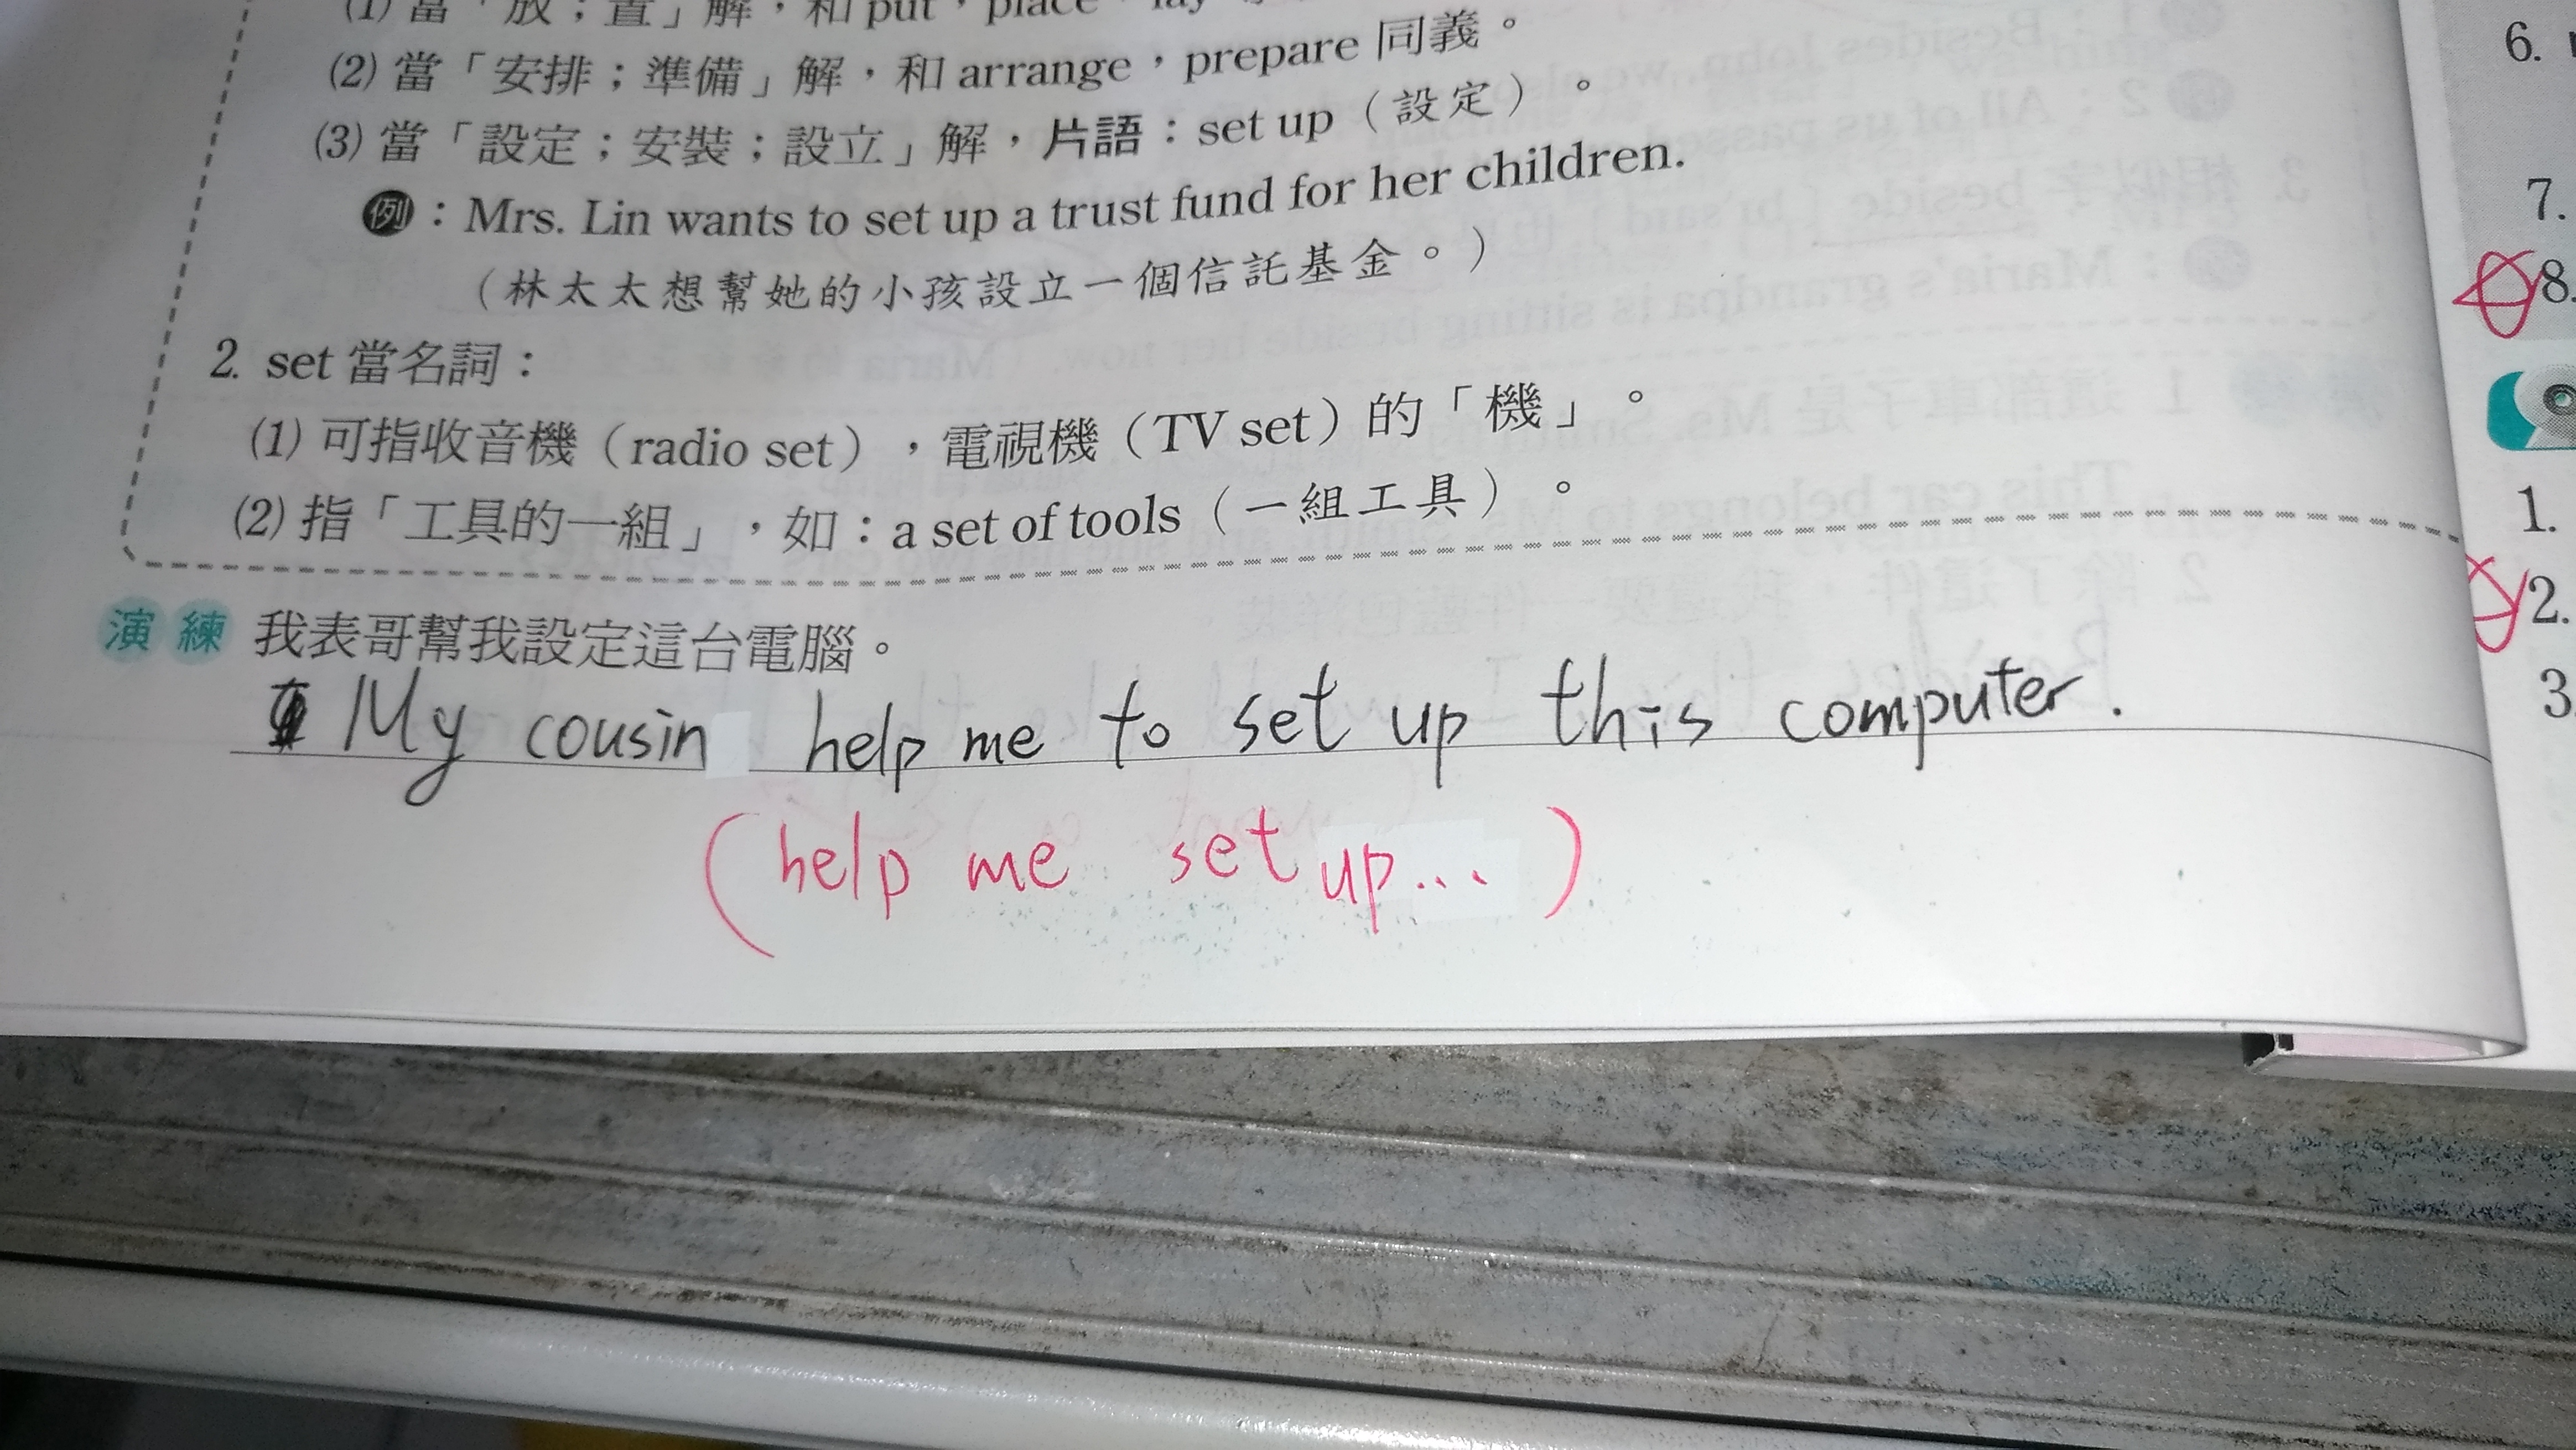 (1) 當「放；置」解，和 put，place，lay
(2) 當「安排；準備」解，和 arrange，prepare 同義。
(3) 當「設定；安裝；設立」解，片語：set up（設定）。
例：Mrs. Lin wants to set up a trust fund for her children.
（林太太想幫她的小孩設立一個信託基金。）
2. set 當名詞：
(1) 可指收音機（radio set），電視機（TV set）的「機」。
(2) 指「工具的一組」，如：a set of tools（一組工具）。
演練 我表哥幫我設定這台電腦。
My cousin help me to set up this computer.
(help me set up...)
6.
7.
8.
1.
2.
3